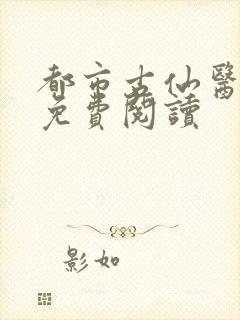 都市古仙醫
免費閱讀
影如